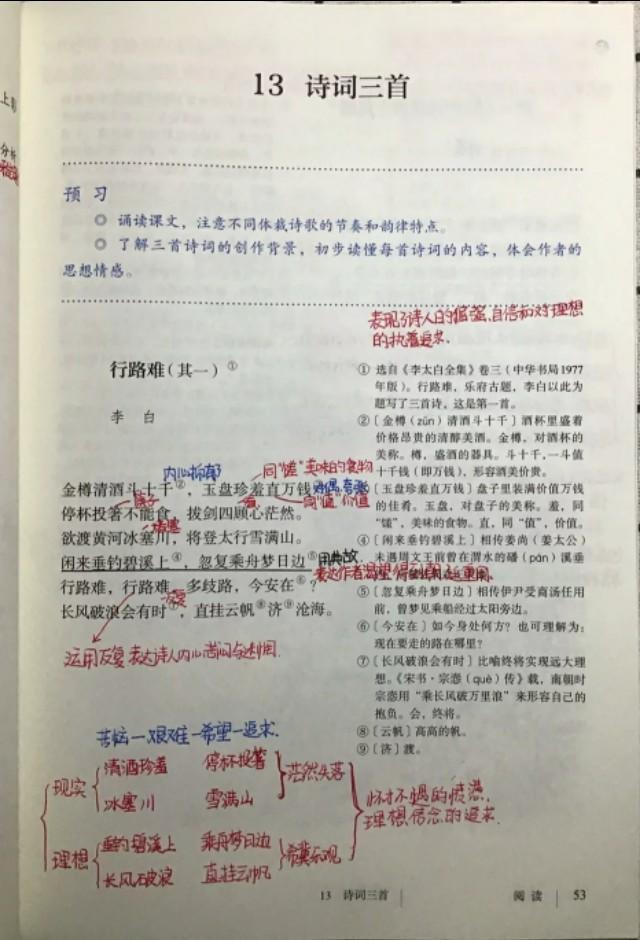 上
分析
13 诗词三首
预 习
◎ 诵读课文，注意不同体裁诗歌的节奏和韵律特点。
◎ 了解三首诗词的创作背景，初步读懂每首诗词的内容，体会作者的
思想情感。
表现了诗人的倔强、自信和对理想
的执着追求.
行路难（其一）①
李 白
内心抑郁
同“馐”美味的食物
金樽清酒斗十千②，玉盘珍羞直万钱
对偶、夸张
同“值”价值
停杯投箸不能食，拔剑四顾心茫然。
堵塞
欲渡黄河冰塞川，将登太行雪满山。
闲来垂钓碧溪上④，忽复乘舟梦日边⑤
用典故,
表达作者渴望得到朝廷重用.
行路难，行路难，多歧路，今安在⑥？
反复
长风破浪会有时⑦，直挂云帆⑧济⑨沧海。
运用反复表达诗人内心苦闷与迷惘.
① 选自《李太白全集》卷三（中华书局1977
年版）。行路难，乐府古题，李白以此为
题写了三首诗，这是第一首。
②〔金樽（zūn）清酒斗十千〕酒杯里盛着
价格昂贵的清醇美酒。金樽，对酒杯的
美称。樽，盛酒的器具。斗十千，一斗值
十千钱（即万钱），形容酒美价贵。
〔玉盘珍羞直万钱〕盘子里装满价值万钱
的佳肴。玉盘，对盘子的美称。羞，同
“馐”，美味的食物。直，同“值”，价值。
④〔闲来垂钓碧溪上〕相传姜尚（姜太公）
未遇周文王前曾在渭水的磻（pán）溪垂
⑤〔忽复乘舟梦日边〕相传伊尹受商汤任用
前，曾梦见乘船经过太阳旁边。
⑥〔今安在〕如今身处何方？也可理解为：
现在要走的路在哪里？
⑦〔长风破浪会有时〕比喻终将实现远大理
想。《宋书·宗悫（què）传》载，南朝时
宗悫用“乘长风破万里浪”来形容自己的
抱负。会，终将。
⑧〔云帆〕高高的帆。
⑨〔济〕渡。
苦恼—艰难—希望—追求.
现实 清酒珍羞 停杯投箸 茫然失落
冰塞川 雪满山
怀才不遇的愤懑,
理想信念的追求.
理想 垂钓碧溪上 乘舟梦日边 希冀乐观
长风破浪 直挂云帆
13 诗词三首 阅 读 53